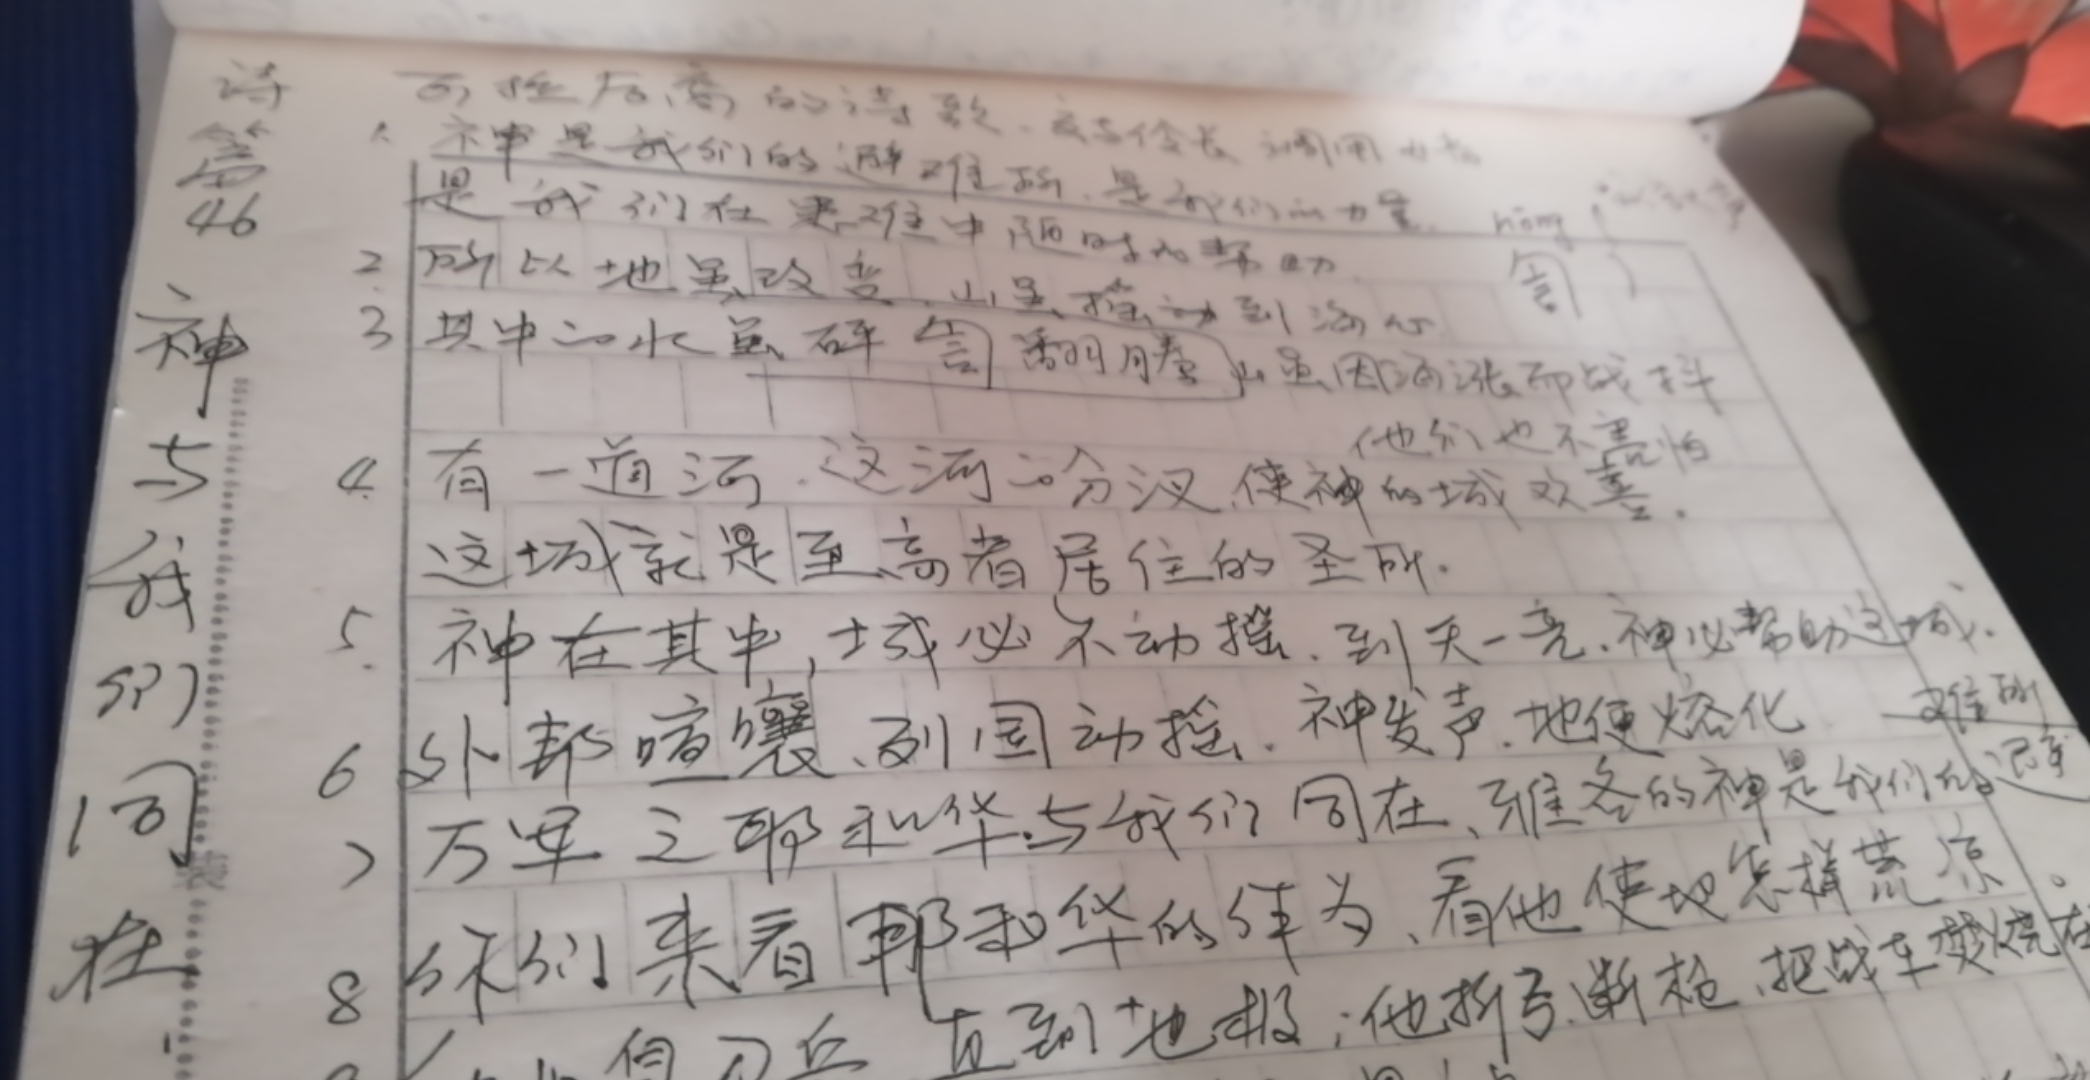 诗篇46
神与我们同在
可拉后裔的诗歌. 交与伶长 调用女音
1. 神是我们的避难所. 是我们的力量.
是我们在患难中随时的帮助
2. 所以地虽改变. 山虽摇动到海心
hōng
訇
3 其中的水虽砰訇翻腾 山虽因海涨而战抖
他们也不害怕
4. 有一道河. 这河的分汊. 使神的城欢喜.
这城就是至高者居住的圣所.
5. 神在其中, 城必不动摇. 到天一亮. 神必帮助这城.
6 外邦喧嚷、列国动摇. 神发声. 地便熔化
7 万军之耶和华与我们同在、雅各的神是我们的避
难所
8 你们来看耶和华的作为、看他使地怎样荒凉.
刀兵 直到地极; 他折弓、断枪、把战车焚烧在